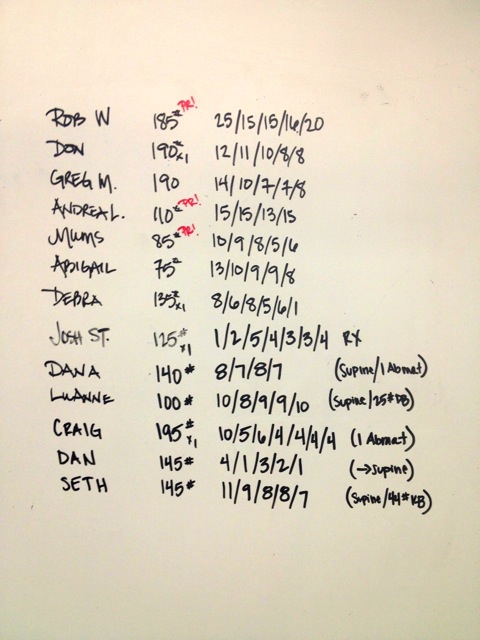 ROB W 185# PR! 25/15/15/16/20
DON 190#x1 12/11/10/8/8
GREG M. 190 14/10/7/7/8
ANDREA L. 110# PR! 15/15/13/15
MUMS 85# PR! 10/9/8/5/6
ABIGAIL 75# 13/10/9/9/8
DEBRA 135#x1 8/6/8/5/6/1
JOSH ST. 125#x1 1/2/5/4/3/3/4 RX
DANA 140# 8/7/8/7 (Supine/1 Abmat)
LUANNE 100# 10/8/9/9/10 (Supine/25#DB)
CRAIG 195#x1 10/5/6/4/4/4/4 (1 Abmat)
DAN 145# 4/1/3/2/1 (→Supine)
SETH 145# 11/9/8/8/7 (Supine/44#KB)